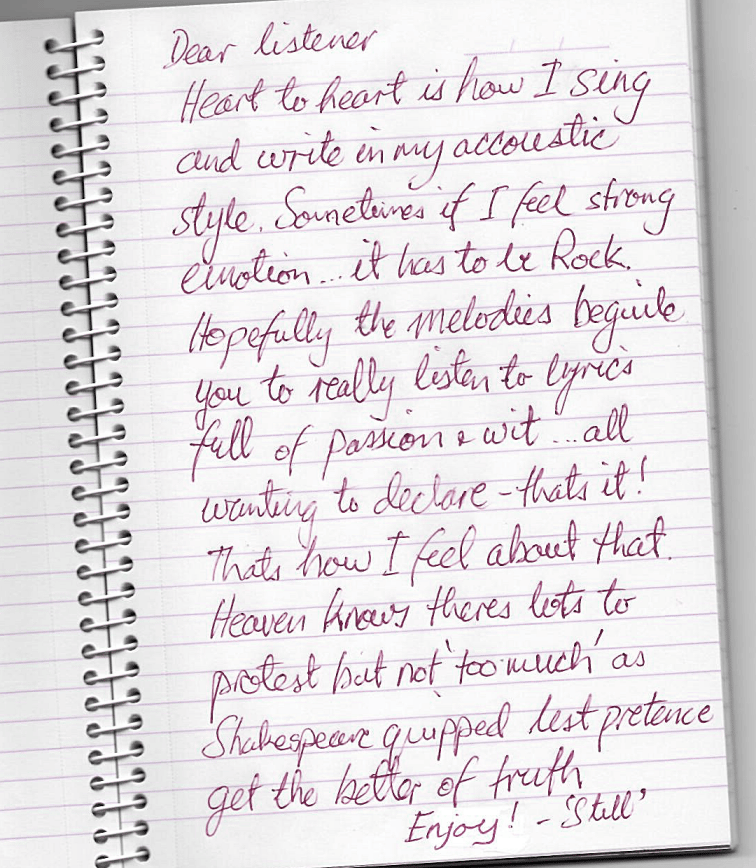 Dear listener
Heart to heart is how I sing
and write in my accoustic
style. Sometimes if I feel strong
emotion... it has to be Rock.
Hopefully the melodies beguile
you to really listen to lyrics
full of passion & wit ... all
wanting to declare - thats it!
Thats how I feel about that.
Heaven knows theres lots to
protest but not 'too much' as
Shakespeare quipped lest pretence
get the better of truth
Enjoy! - 'Still'